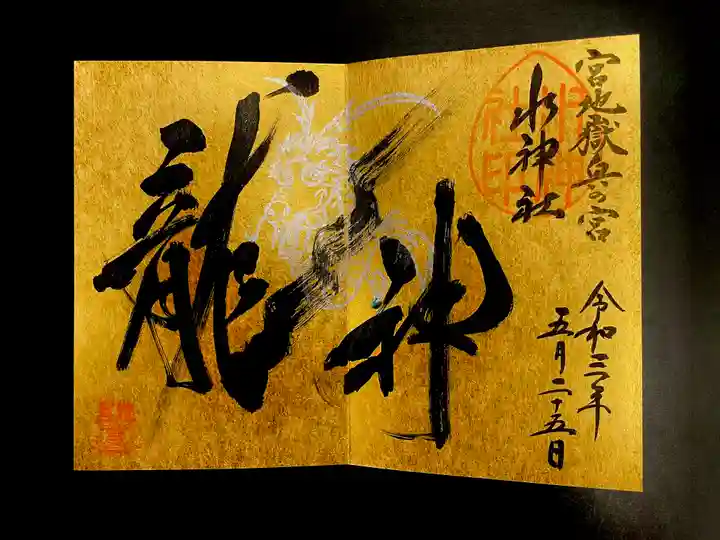 宮地嶽奥の宮
水神社
令和三年
五月二十五日
神
龍